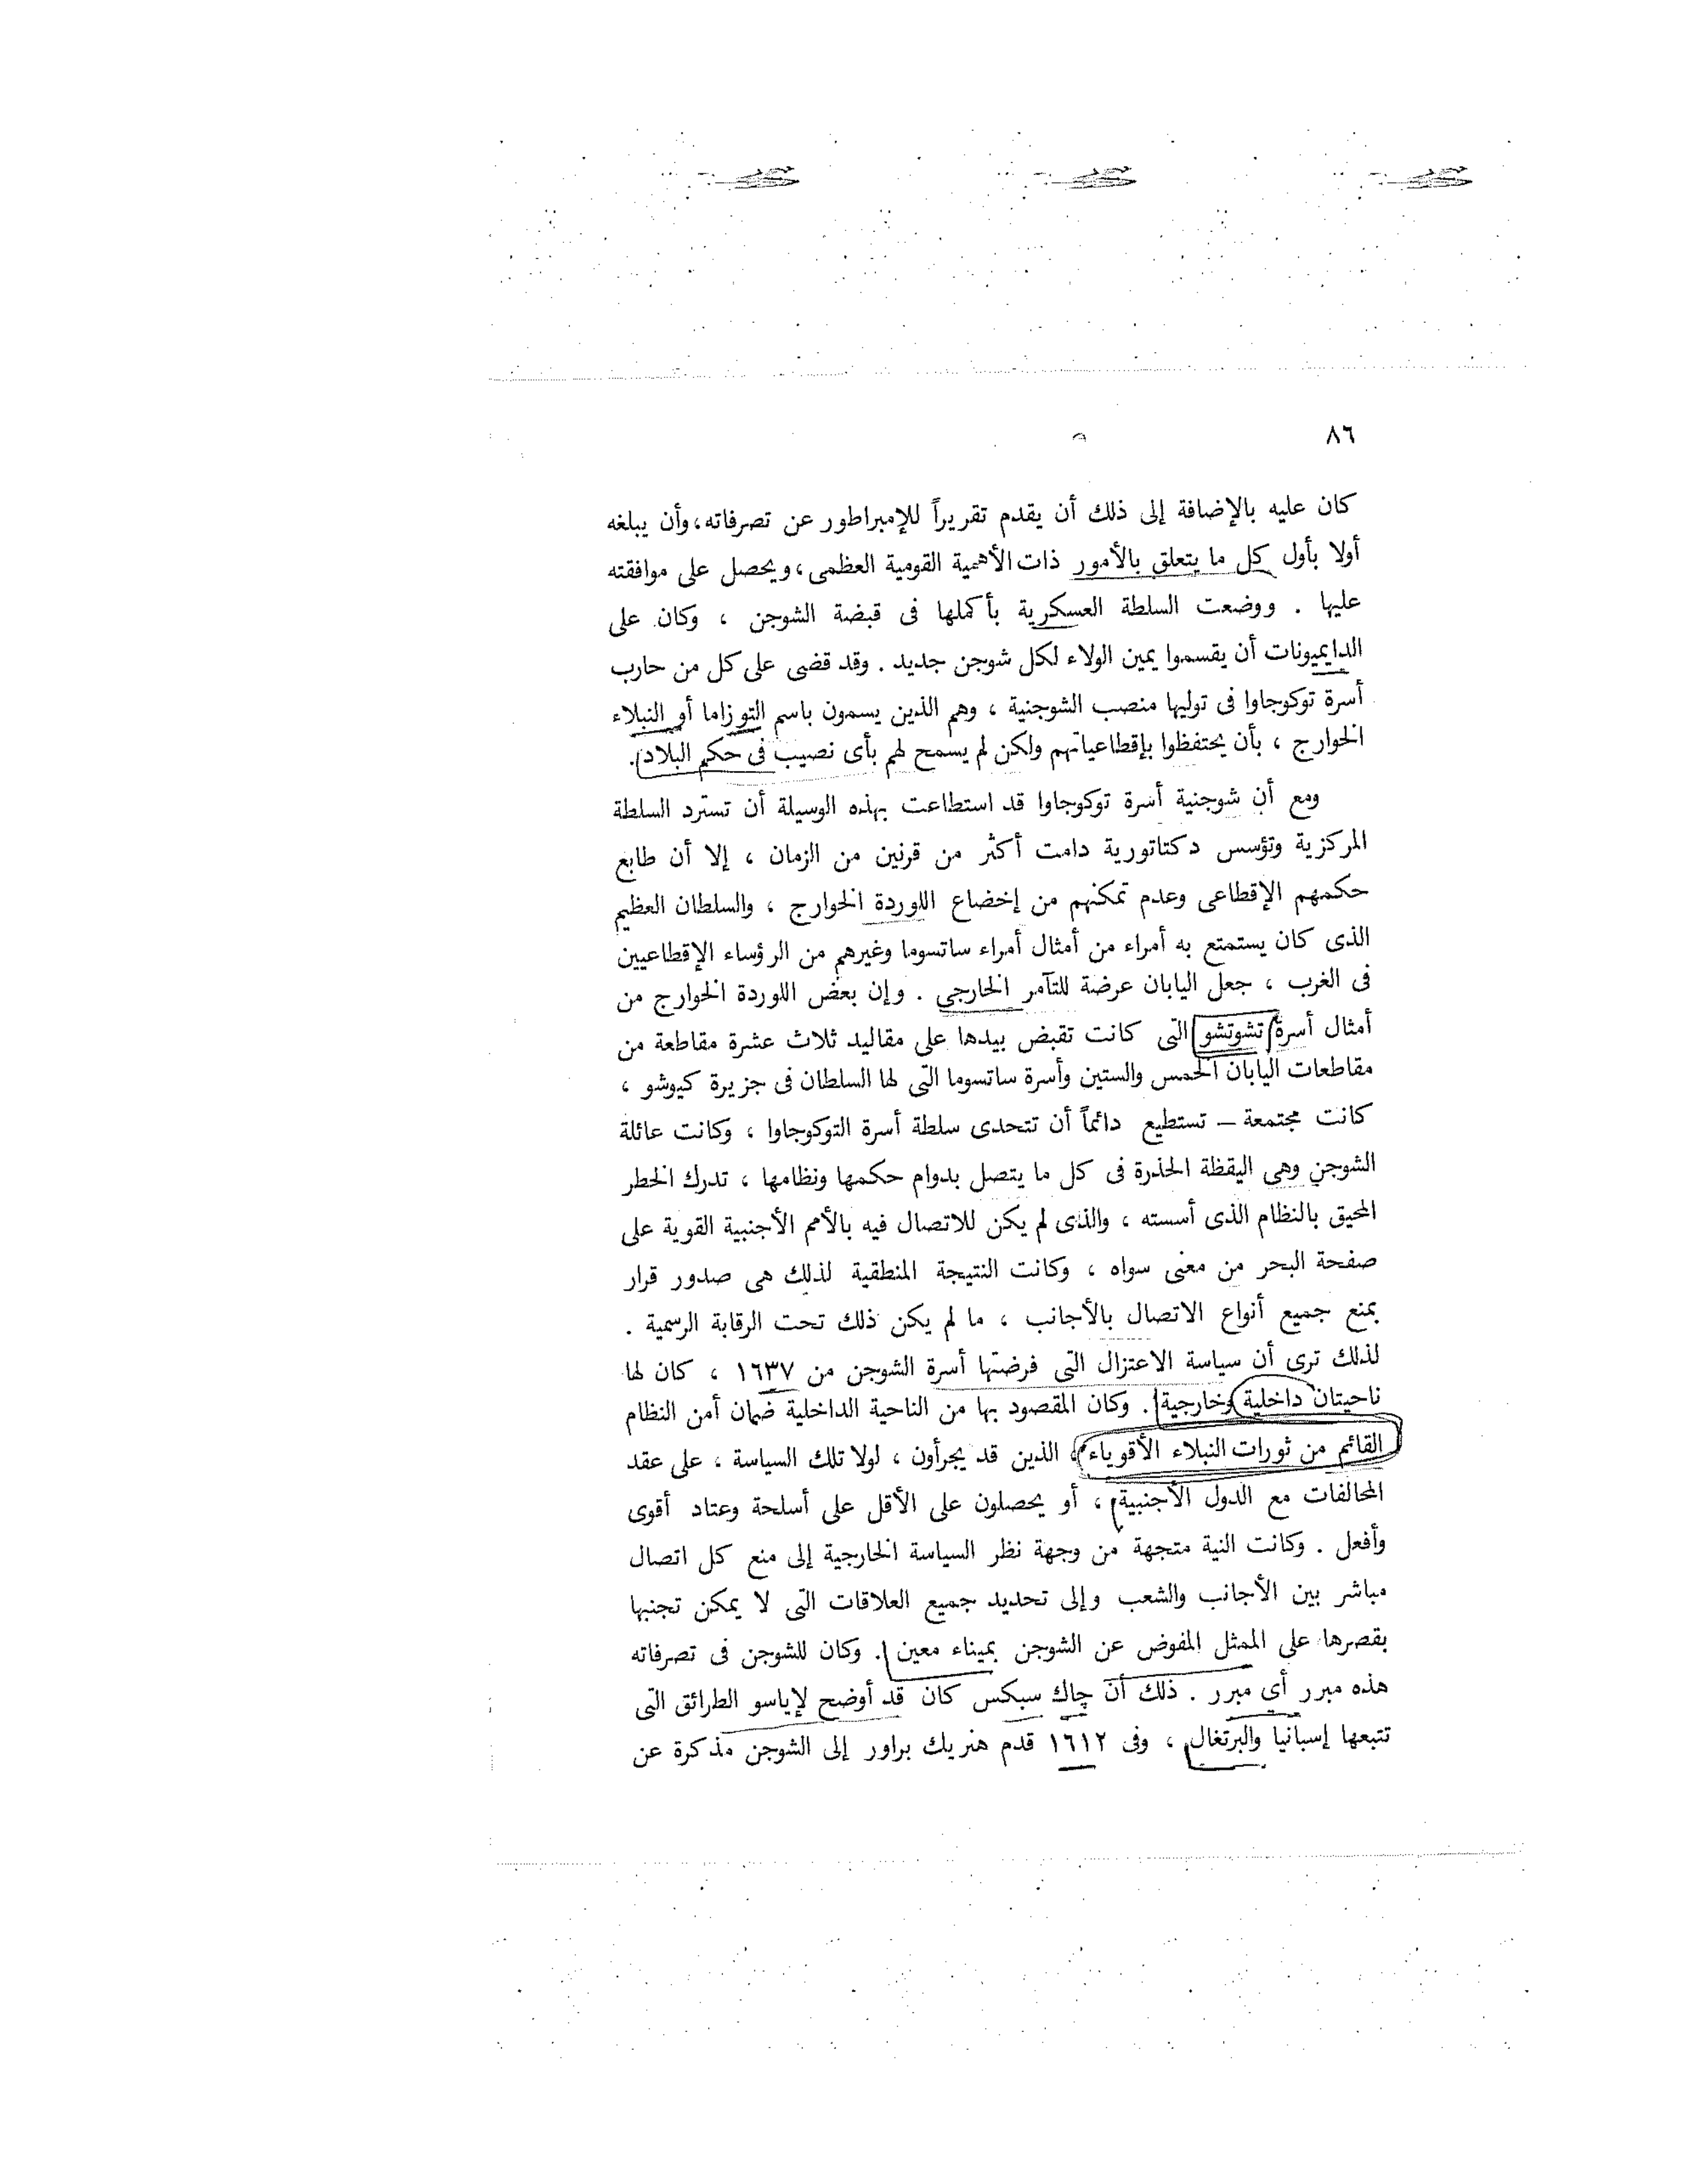 ٨٦
كان عليه بالإضافة إلى ذلك أن يقدم تقريراً للإمبراطور عن تصرفاته، وأن يبلغه
أولا بأول كل ما يتعلق بالأمور ذات الأهمية القومية العظمى، ويحصل على موافقته
عليها . ووضعت السلطة العسكرية بأكملها فى قبضة الشوجن ، وكان على
الدايميونات أن يقسموا يمين الولاء لكل شوجن جديد . وقد قضى على كل من حارب
أسرة توكوجاوا فى توليها منصب الشوجنية ، وهم الذين يسمون باسم التوزاما أو النبلاء
الخوارج ، بأن يحتفظوا بإقطاعياتهم ولكن لم يسمح لهم بأى نصيب فى حكم البلاد .
ومع أن شوجنية أسرة توكوجاوا قد استطاعت بهذه الوسيلة أن تسترد السلطة
المركزية وتؤسس دكتاتورية دامت أكثر من قرنين من الزمان ، إلا أن طابع
حكمهم الإقطاعى وعدم تمكنهم من إخضاع اللوردة الخوارج ، والسلطان العظيم
الذى كان يستمتع به أمراء من أمثال أمراء ساتسوما وغيرهم من الرؤساء الإقطاعيين
فى الغرب ، جعل اليابان عرضة للتآمر الخارجى . وإن بعض اللوردة الخوارج من
أمثال أسرة تشوتشو التى كانت تقبض بيدها على مقاليد ثلاث عشرة مقاطعة من
مقاطعات اليابان الخمس والستين وأسرة ساتسوما التى لها السلطان فى جزيرة كيوشو ،
كانت مجتمعة – تستطيع دائماً أن تتحدى سلطة أسرة التوكوجاوا ، وكانت عائلة
الشوجن وهى اليقظة الحذرة فى كل ما يتصل بدوام حكمها ونظامها ، تدرك الخطر
المحيق بالنظام الذى أسسته ، والذى لم يكن للاتصال فيه بالأمم الأجنبية القوية على
صفحة البحر من معنى سواه ، وكانت النتيجة المنطقية لذلك هى صدور قرار
بمنع جميع أنواع الاتصال بالأجانب ، ما لم يكن ذلك تحت الرقابة الرسمية .
لذلك ترى أن سياسة الاعتزال التى فرضتها أسرة الشوجن من ١٦٣٧ ، كان لها
ناحيتان داخلية وخارجية . وكان المقصود بها من الناحية الداخلية ضمان أمن النظام
القائم من ثورات النبلاء الأقوياء ، الذين قد يجرأون ، لولا تلك السياسة ، على عقد
المحالفات مع الدول الأجنبية ، أو يحصلون على الأقل على أسلحة وعتاد أقوى
وأفعل . وكانت النية متجهة من وجهة نظر السياسة الخارجية إلى منع كل اتصال
مباشر بين الأجانب والشعب وإلى تحديد جميع العلاقات التى لا يمكن تجنبها
بقصرها على الممثل المفوض عن الشوجن بميناء معين . وكان للشوجن فى تصرفاته
هذه مبرر أى مبرر . ذلك أن چاك سبكس كان قد أوضح لإياسو الطرائق التى
تتبعها إسبانيا والبرتغال ، وفى ١٦١٢ قدم هنريك براور إلى الشوجن مذكرة عن